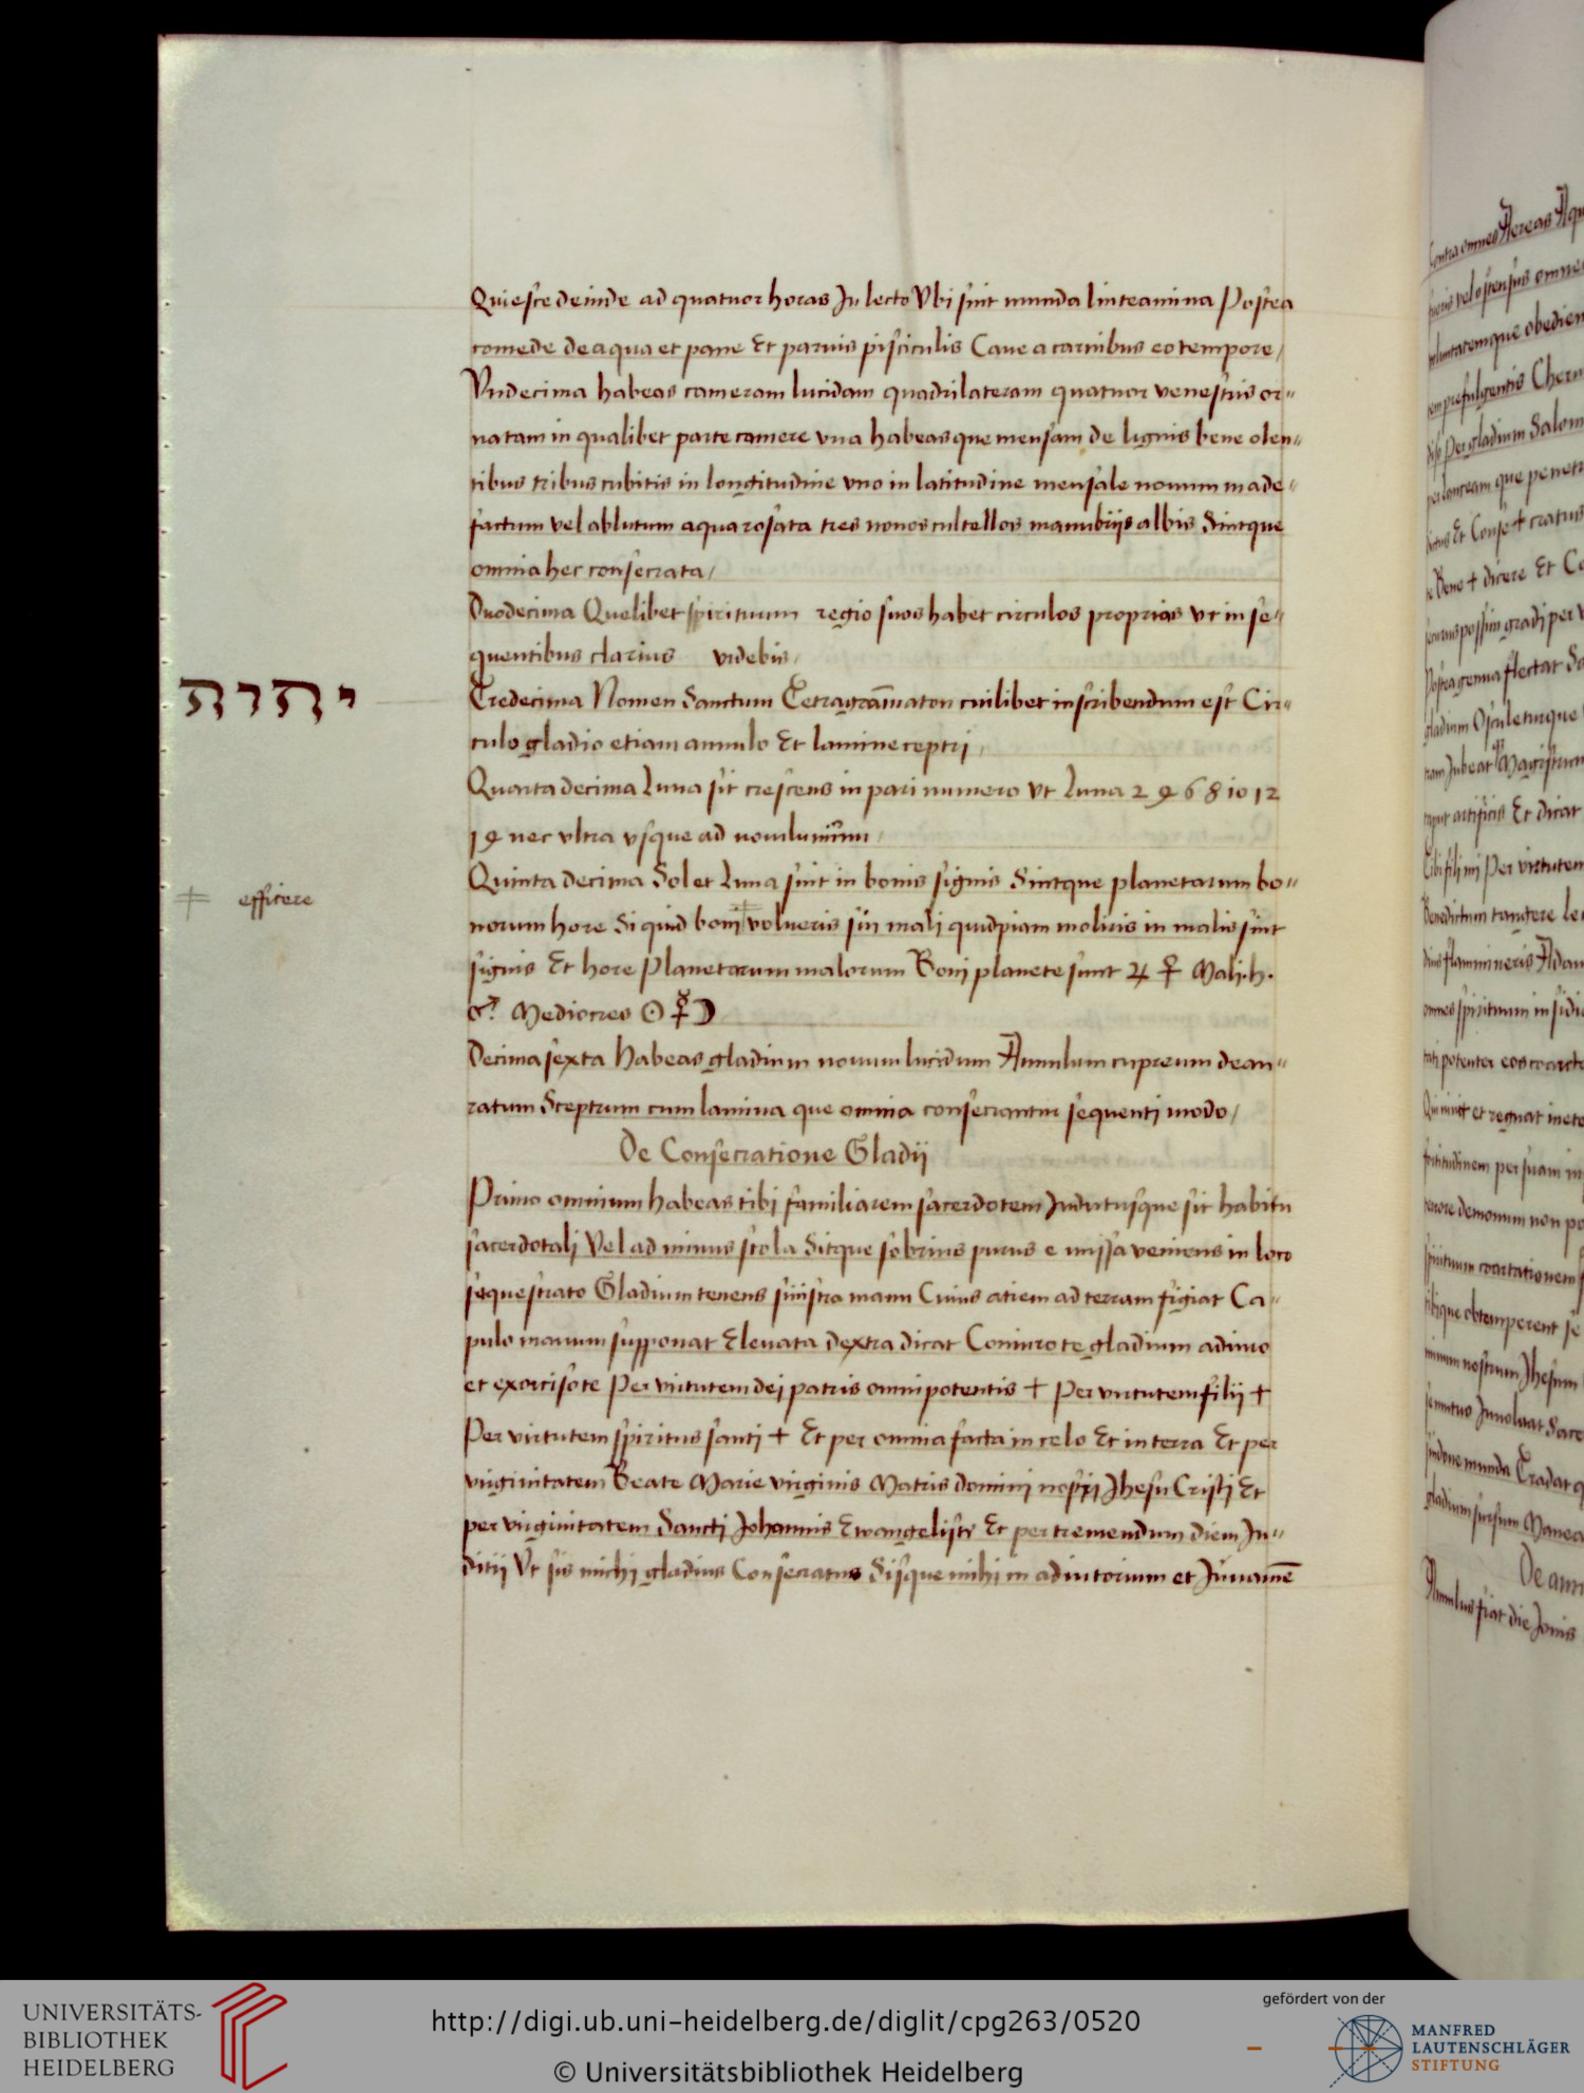 Quiesce deinde ad quatuor horas In lecto Vbi sint munda linteamina Postea
comede de aqua et pane Et paruis pisciculis Caue a carnibus eo tempore /
Vndecima habeas cameram lucidam quadrilateram quatuor venestris or„
natam in qualibet parte camere vna habeasque mensam de lignis bene olen„
tibus tribus cubitis in longitudine vno in latitudine mensale nouum made„
factum vel ablutum aqua rosata tres nouos cultellos manubrijs albis Sintque
omnia hec consecrata /
Duodecima Quelibet spirituum regio suos habet circulos proprios vt in se„
quentibus clarius videbis /
יהוה
Tredecima Nomen Sanctum Tetragram̄maton cuilibet inscribendum est Cir„
culo gladio etiam annulo Et lamine ceptri /
Quarta decima Luna sit crescens in pari numero Vt Luna 2 4 6 8 10 12
14 nec vltra vsque ad nouilunium /
Quinta decima Sol et Luna sint in bonis signis Sintque planetarum bo„
‡ efficere
norum hore Si quid boni ‡ volueris sin mali quidpiam moliris in malis sint
signis Et hore Planetarum malorum Boni planete sunt ♃ ♀ Mali ♄.
♂ Mediocres ☉ ☿ ☽
Decima sexta Habeas gladium nouum lucidum Annulum cupreum deau„
ratum Sceptrum cum lamina que omnia consecrantur sequenti modo /
De Consecratione Gladij
Primo omnium habeas tibi familiarem sacerdotem Indutusque sit habitu
sacerdotali Vel ad minus stola Sitque sobrius purus e missa veniens in loco
sequestrato Gladium tenens sinistra manu Cuius aciem ad terram figiat Ca„
pulo manum supponat Eleuata dextra dicat Coniuro te gladium adiuro
et exorciso te Per virtutem dei patris omnipotentis + Per virtutem filij +
Per virtutem spiritus santi + Et per omnia facta in celo Et in terra Et per
virginitatem Beate Marie virginis Matris domini nostri Jhesu Cristi Et
per virginitatem Sancti Johannis Ewangeliste Et per tremendum diem Ju„
ditij Vt sis michi gladius Consecratus Sisque mihi in adiutorium et Juuamē
UNIVERSITÄTS-
BIBLIOTHEK
HEIDELBERG
http://digi.ub.uni-heidelberg.de/diglit/cpg263/0520
© Universitätsbibliothek Heidelberg
gefördert von der
MANFRED
LAUTENSCHLÄGER
STIFTUNG